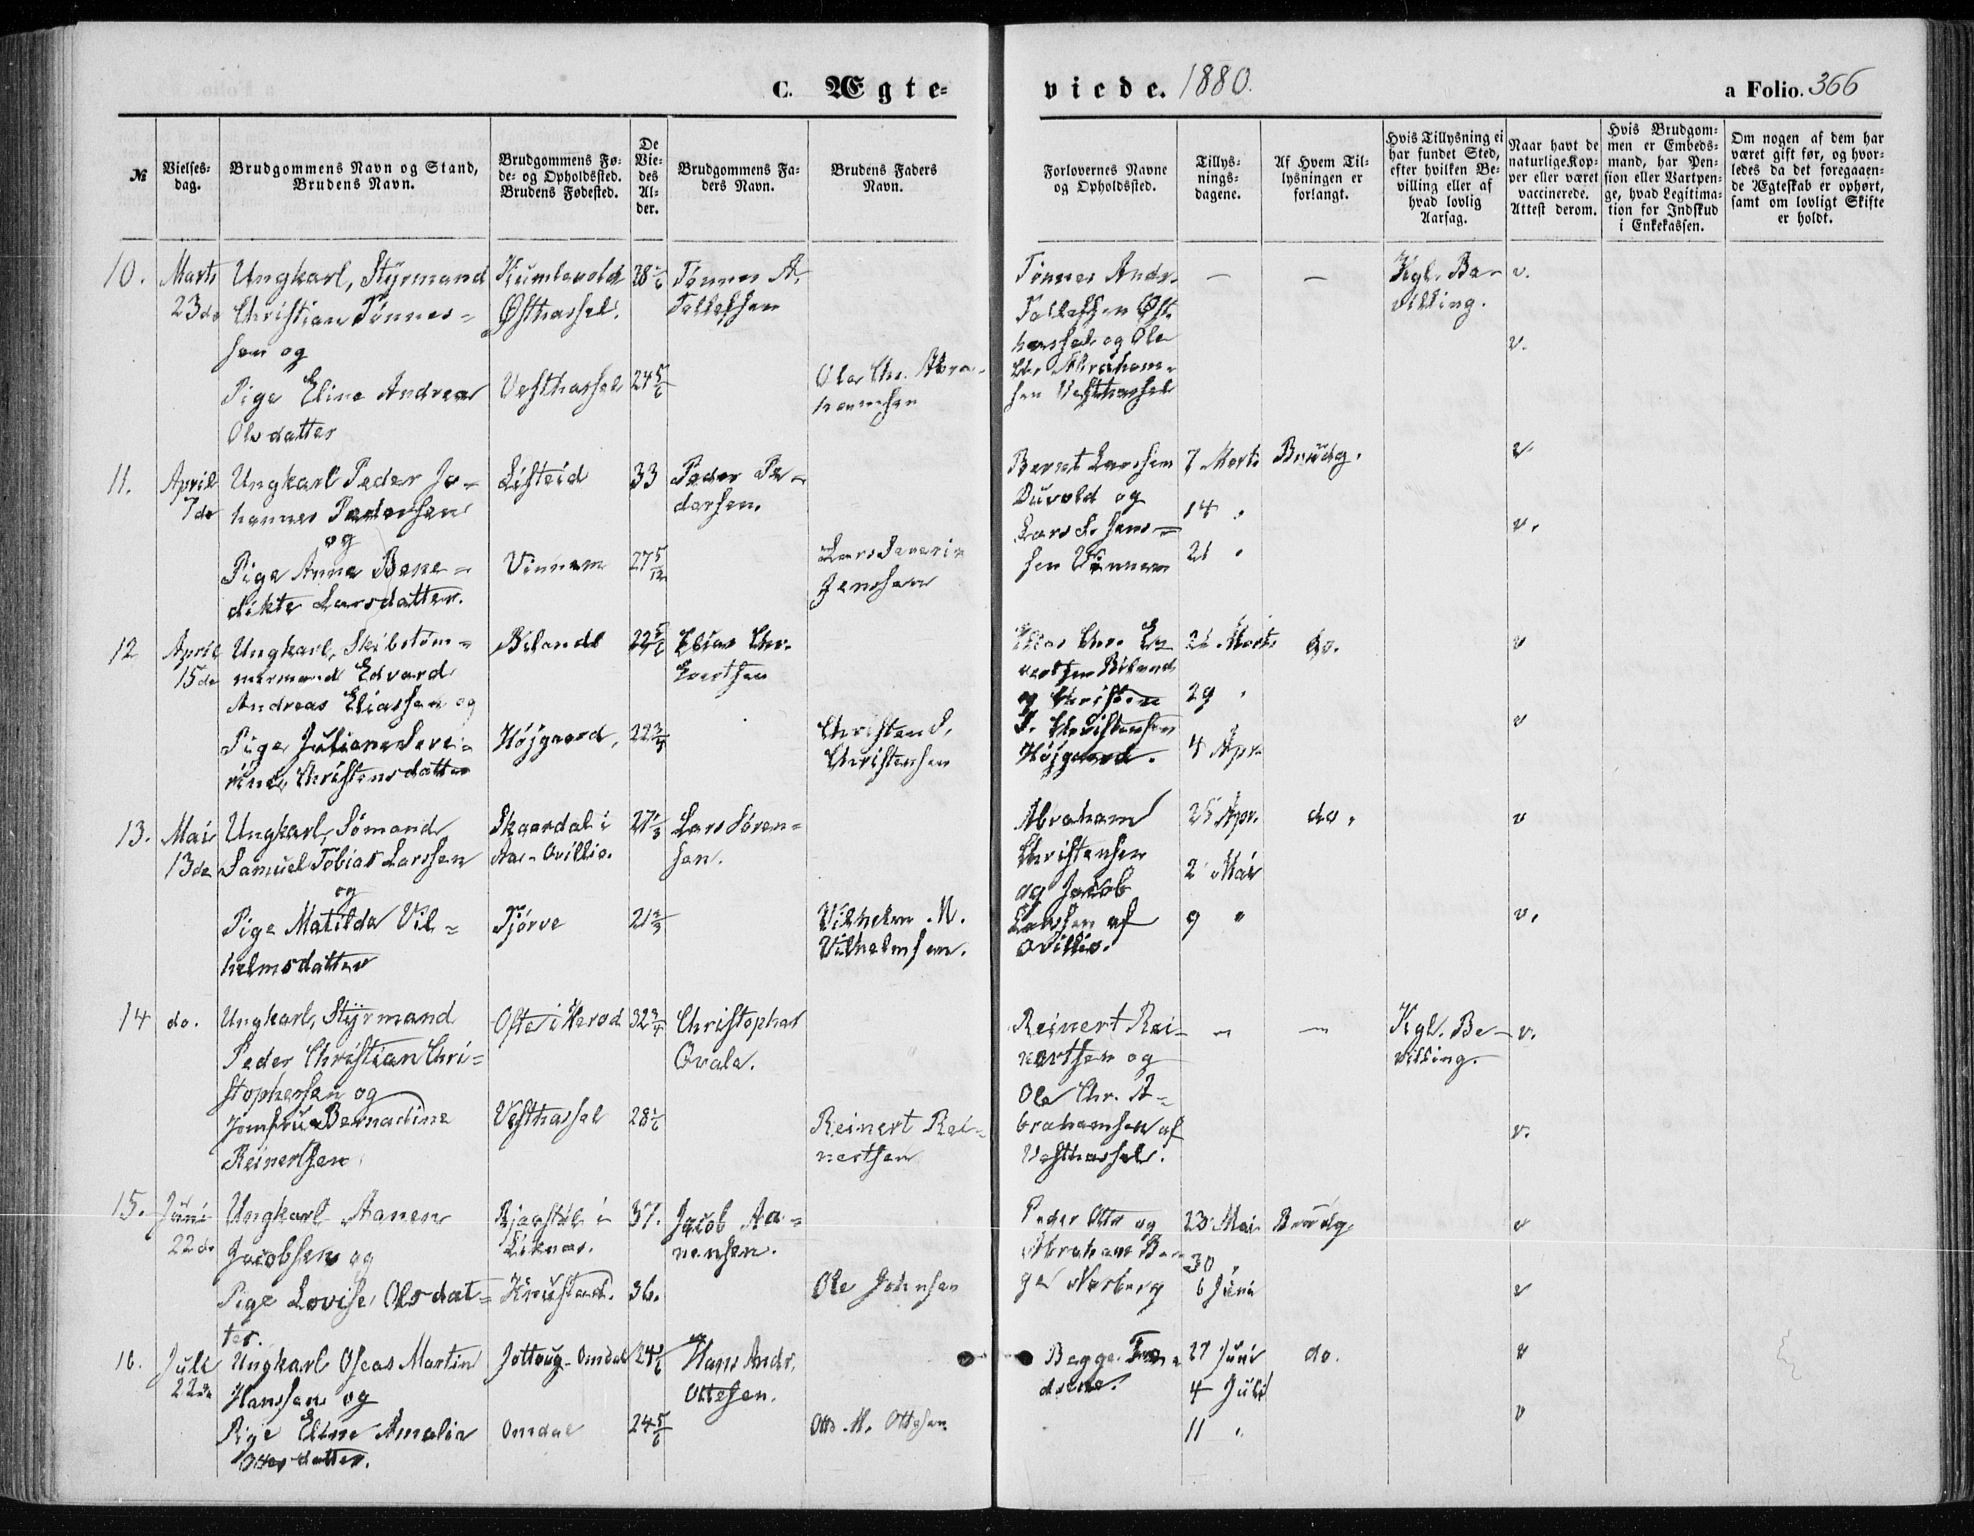 C. Ægte=
viede. 1880.
a Folio. 366
№
Vielses-
dag.
Brudgommens Navn og Stand,
Brudens Navn.
Brudgommens Fø-
de- og Opholdssted.
Brudens Fødested.
De
Vie-
des
Al-
der.
Brudgommens Fa-
ders Navn.
Brudens Faders
Navn.
Forlovernes Navne
og Opholdssted.
Tillys-
nings-
dagene.
Af Hvem Til-
lysningen er
forlangt.
Hvis Tillysning ei
har fundet Sted,
efter hvilken Be-
villing eller af
hvad lovlig
Aarsag.
Naar havt de
naturlige Kop-
per eller været
vaccinerede.
Attest derom.
Hvis Brudgom-
men er Embeds-
mand, har Pen-
sion eller Vartpen-
ge, hvad Legitima-
tion for Indskud
i Enkekassen.
Om nogen af dem har
været gift før, og hvor-
ledes da det foregaaen-
de Ægteskab er ophørt,
samt om lovligt Skifte
er holdt.
10.
Marts
23de
Ungkarl, Styrmand
Christian Tønnes-
sen og
Pige Eline Andrea
Olsdatter
Kumlevold
Østhassel.
Vesthassel
28 1/6
24 5/6
Tønnes A.
Tollefsen
Ole Chr. Abra-
hamsen
Tønnes Andr.
Tollefsen Øst-
hassel og Ole
Chr. Abraham-
sen Vesthassel
—
—
Kgl. Be-
villing.
v.
v.
11.
April
7de
Ungkarl Peder Jo-
hannes Pedersen
og
Pige Anna Bene-
dikte Larsdatter.
Listeid
Vinnem
33
27 5/12
Peder Pe-
dersen.
Lars Severin
Jenssen
Bernt Larssen
Duvold og
Lars S. Jens-
sen Vinnem
7 Marts
14 "
21 "
Brudg.
v.
v.
12
April
15de
Ungkarl, Skibstøm-
mermand Edvard
Andreas Eliassen og
Pige Juliane Seve-
rine Christensdatter
Biland
Højgaard.
22 5/6
22 3/4
Elias Chr.
Evertsen
Christen S.
Christensen
Elias Chr. E-
vertsen Biland
og Christen
S. Christensen
Højgaard.
21 Marts
29 "
4 Apr.
do.
v
v
13.
Mai
13de
Ungkarl, Sømand
Samuel Tobias Larssen
og
Pige Matilda Vil-
helmsdatter
Skaardal i
Aa - Qvillio.
Tjørve
27 1/3
21 2/3
Lars Søren-
sen.
Vilhelm M.
Vilhelmsen.
Abraham
Christensen
og Jacob
Larssen af
Qvillio.
25 Apr.
2 Mai
9 "
do.
v
v.
14
do.
Ungkarl, Styrmand
Peder Christian Chri-
stophersen og
Jomfru Bernadine
Reinertsen
Ofte i Herod
Vesthassel
32 3/4
28 1/6
Christopher
Qvale.
Reinert Rei-
nertsen
Reinert Rei-
nertsen og
Ole Chr. A-
brahamsen af
Vesthassel.
—
—
Kgl. Be-
villing.
v.
v.
15.
Juni
22de
Ungkarl Aanen
Jacobsen og
Pige Lovise Olsdat-
ter.
Liknæs.
37.
36.
Jacob Aa-
nensen.
Ole Johnsen
Peder Otto og
Abraham Ber-
ge Norberg
23 Mai
30 "
6 Juni
Brudg.
v
v
16.
Juli
22de
Ungkarl Oseas Martin
Hanssen og
Pige Eline Amalia
Ottesdatter.
Jottoug - Omdal
Omdal
24 5/6
24 5/6
Hans Andr.
Ottesen.
Otto M. Ottesen
Begge Fæ-
drene.
27 Juni
4 Juli
11 "
do.
v
v